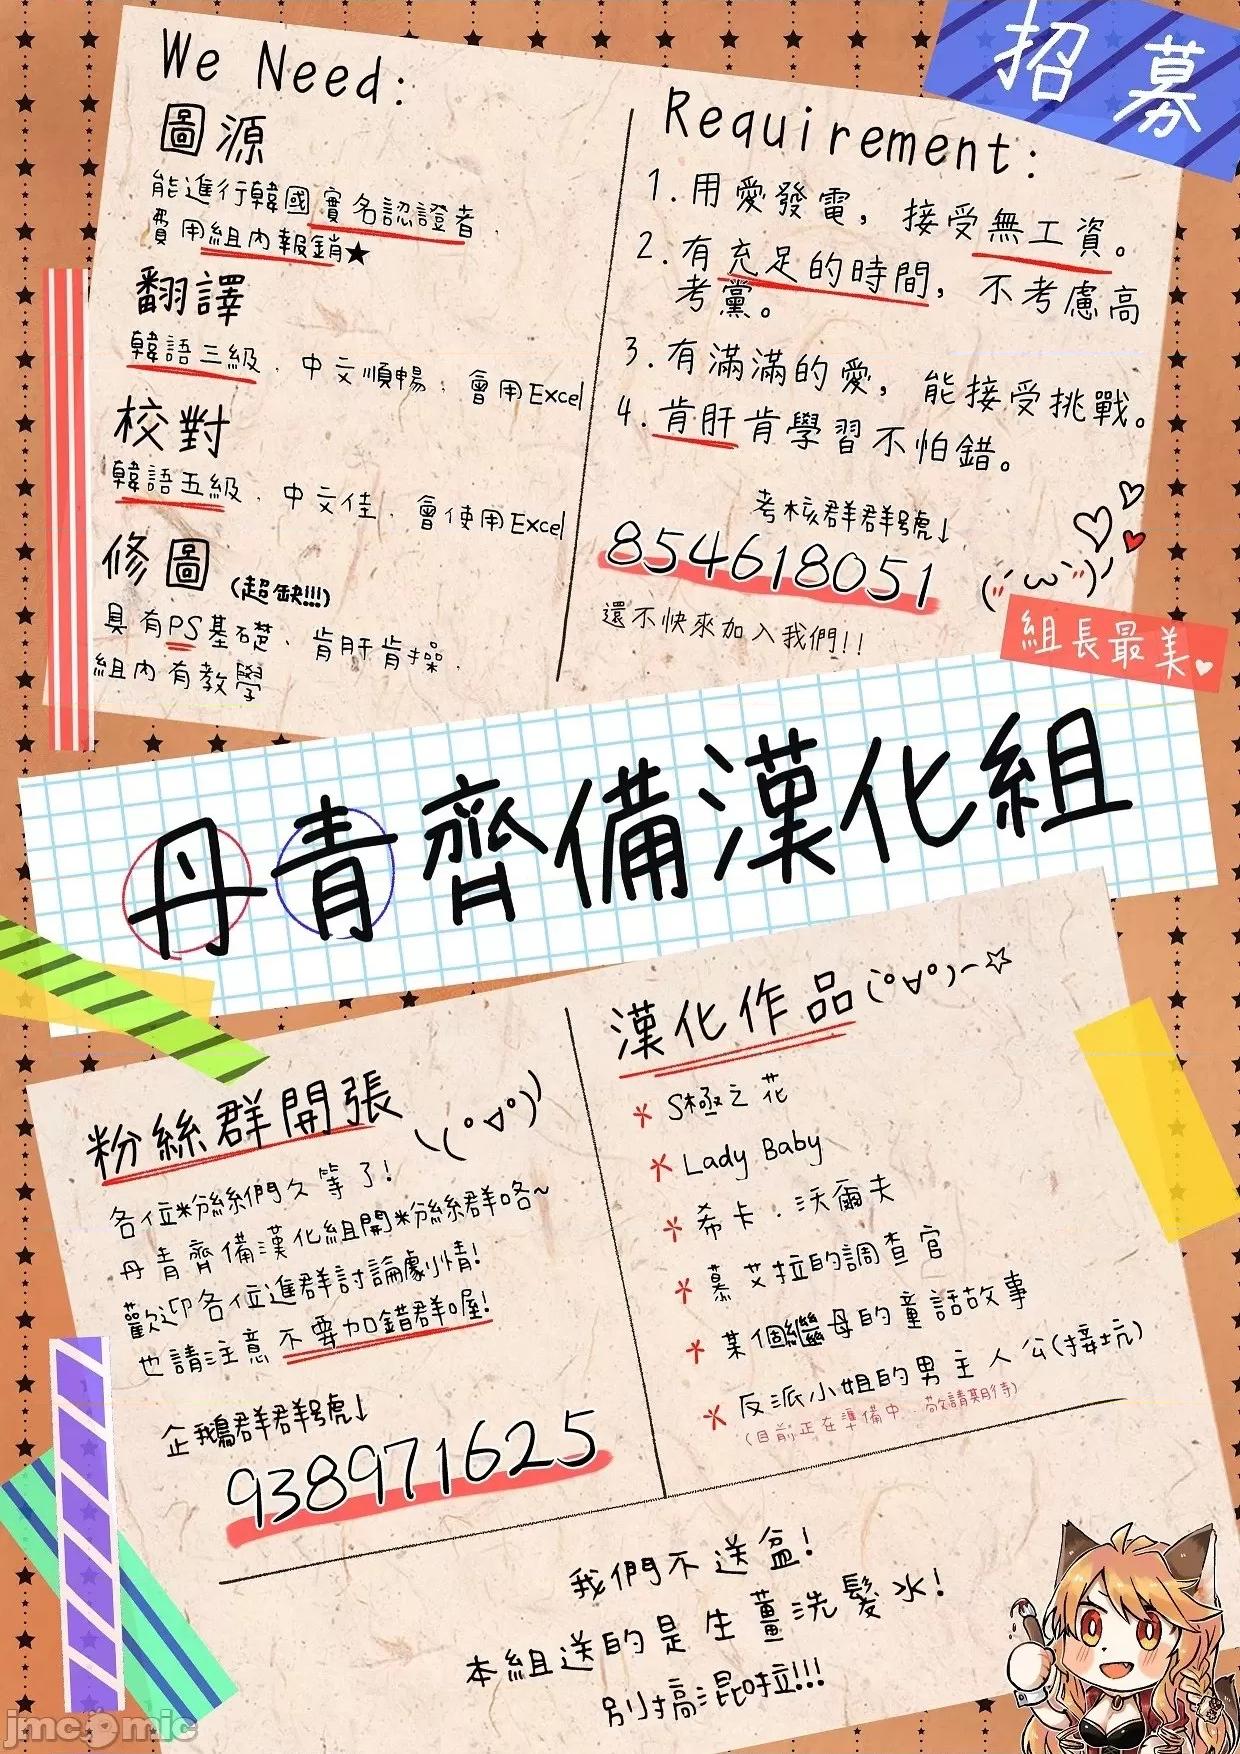 招募
We Need:
圖源
能進行韓國實名認證者.
費用組內報銷★
翻譯
韓語三級、中文順暢、會用Excel
校對
韓語五級、中文佳、會使用Excel
修圖(超缺!!!)
具有PS基礎、肯肝肯操.
組內有教學
Requirement:
1.用愛發電，接受無工資。
2.有充足的時間，不考慮高
考黨。
3.有滿滿的愛，能接受挑戰。
4.肯肝肯學習不怕錯。
考核群群號↓
854618051
還不快來加入我們!!
組長最美
丹青齊備漢化組
粉絲群開張
各位粉絲們久等了!
丹青齊備漢化組開粉絲群咯~
歡迎各位進群討論劇情!
也請注意不要加錯群喔!
企鵝群群號↓
938971625
漢化作品
S極之花
Lady Baby
希卡·沃爾夫
慕艾拉的調查官
某個繼母的童話故事
反派小姐的男主人公(接坑)
(目前正在準備中、敬請期待)
我們不送盆!
本組送的是生薑洗髮水!
別搞混啦!!!
jmcomic